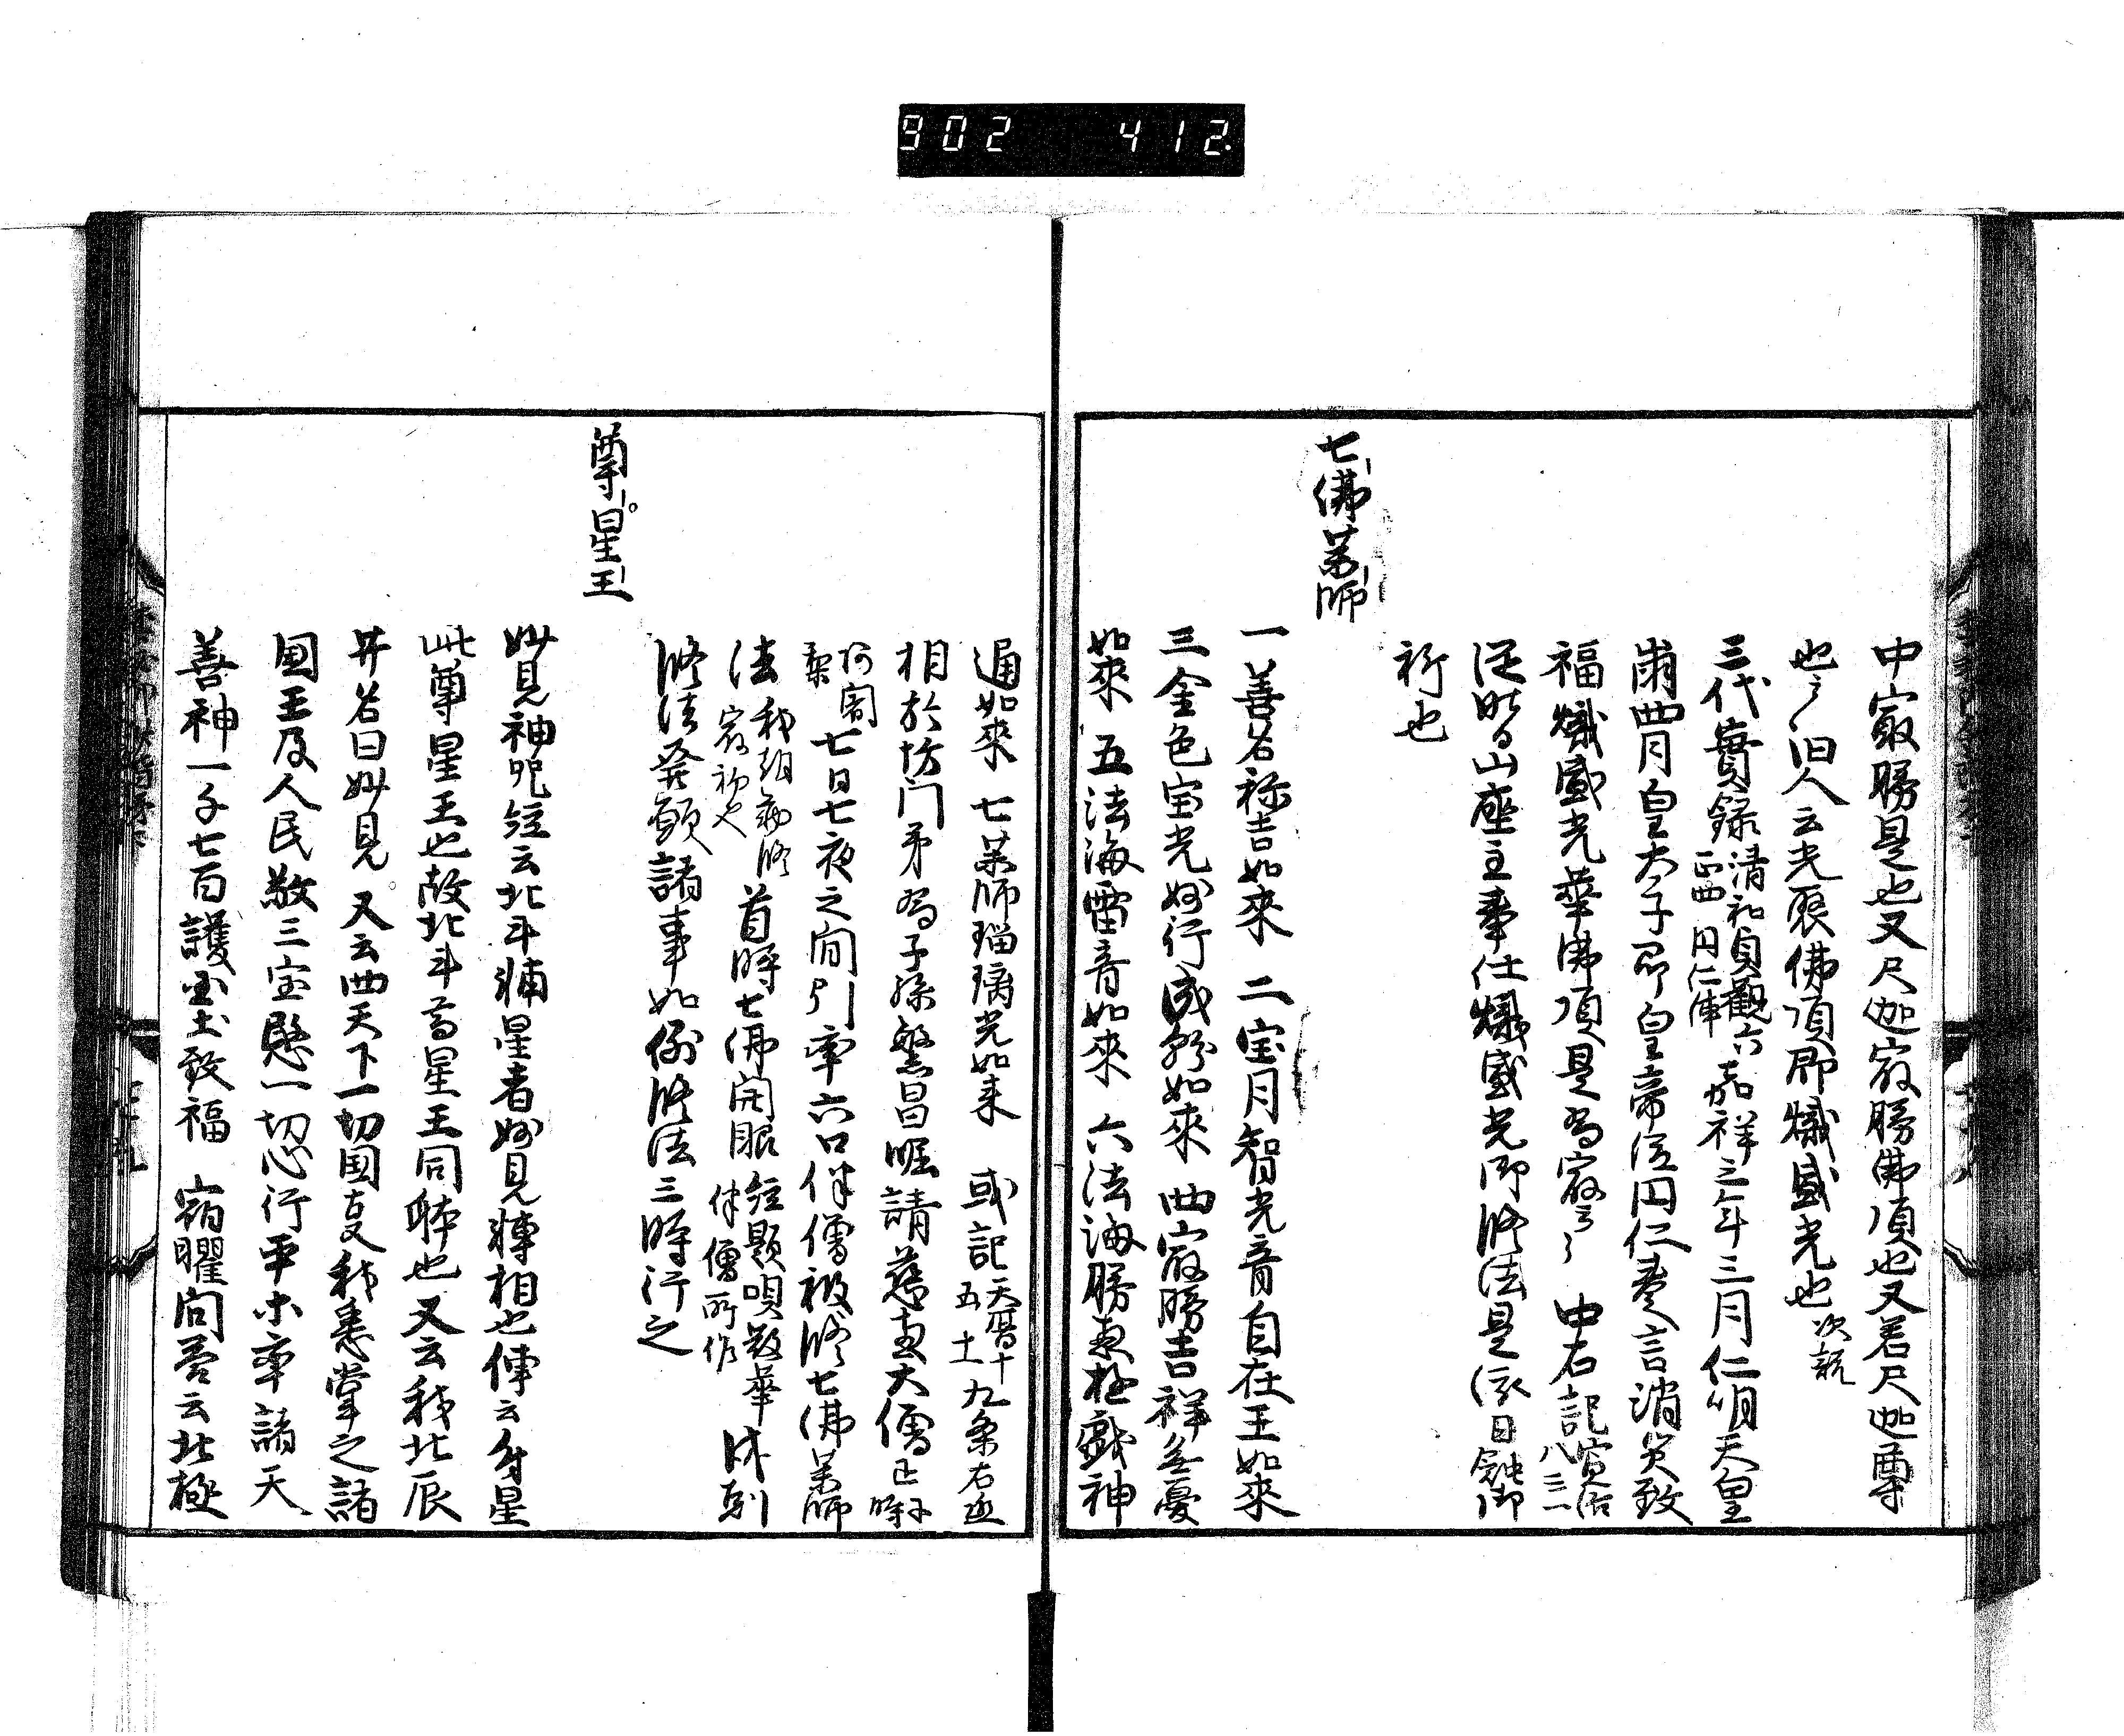 902 412.
中最勝是也又尺迦最勝佛頂也又若尺迦尊
也云々旧人云光聚佛頂即熾盛光也次説
三代實録清和貞觀六正四円仁傳嘉祥三年三月仁明天皇
崩四月皇太子即皇帝位円仁奏言消災致
福熾盛光華佛頂是為最云々中右記寛治八三一
従昨日山座主奉仕熾盛光御修法是依日蝕御
祈也
七佛薬師
一善名称吉如來 二宝月智光音自在王如來
三金色宝光妙行成就如來 四最勝吉祥無憂
如來 五法海雷音如來 六法海勝恵遊戯神
通如來 七薬師瑠璃光如來 或記天暦十五土九条右丞
相於坊門弟為子孫繁昌啒請慈恵大僧正于時
阿闍梨七日七夜之間引率六口伴僧被修七佛薬師
法我朝始修最初也首時七佛開眼經題唄散華伴僧所作戌刻
修法発願諸事如例修法三時行之
尊星王
妙見神呪經云北斗輔星者妙見轉相也傳云身星
此尊星王也故北斗尊星王同躰也又云我北辰
井名曰妙見 又云四天下一切国事我悉掌之諸
国王及人民敬三宝愍一切心行平等率諸天
善神一千七百護国土致福 宿曜問答云北極